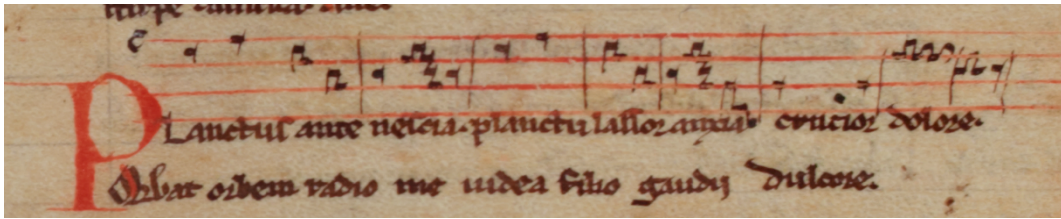 PLanctus ante nescia. planctu lassor anxia. crucior dolore.
Orbat orbem radio me iudea filio gaudii dulcore.